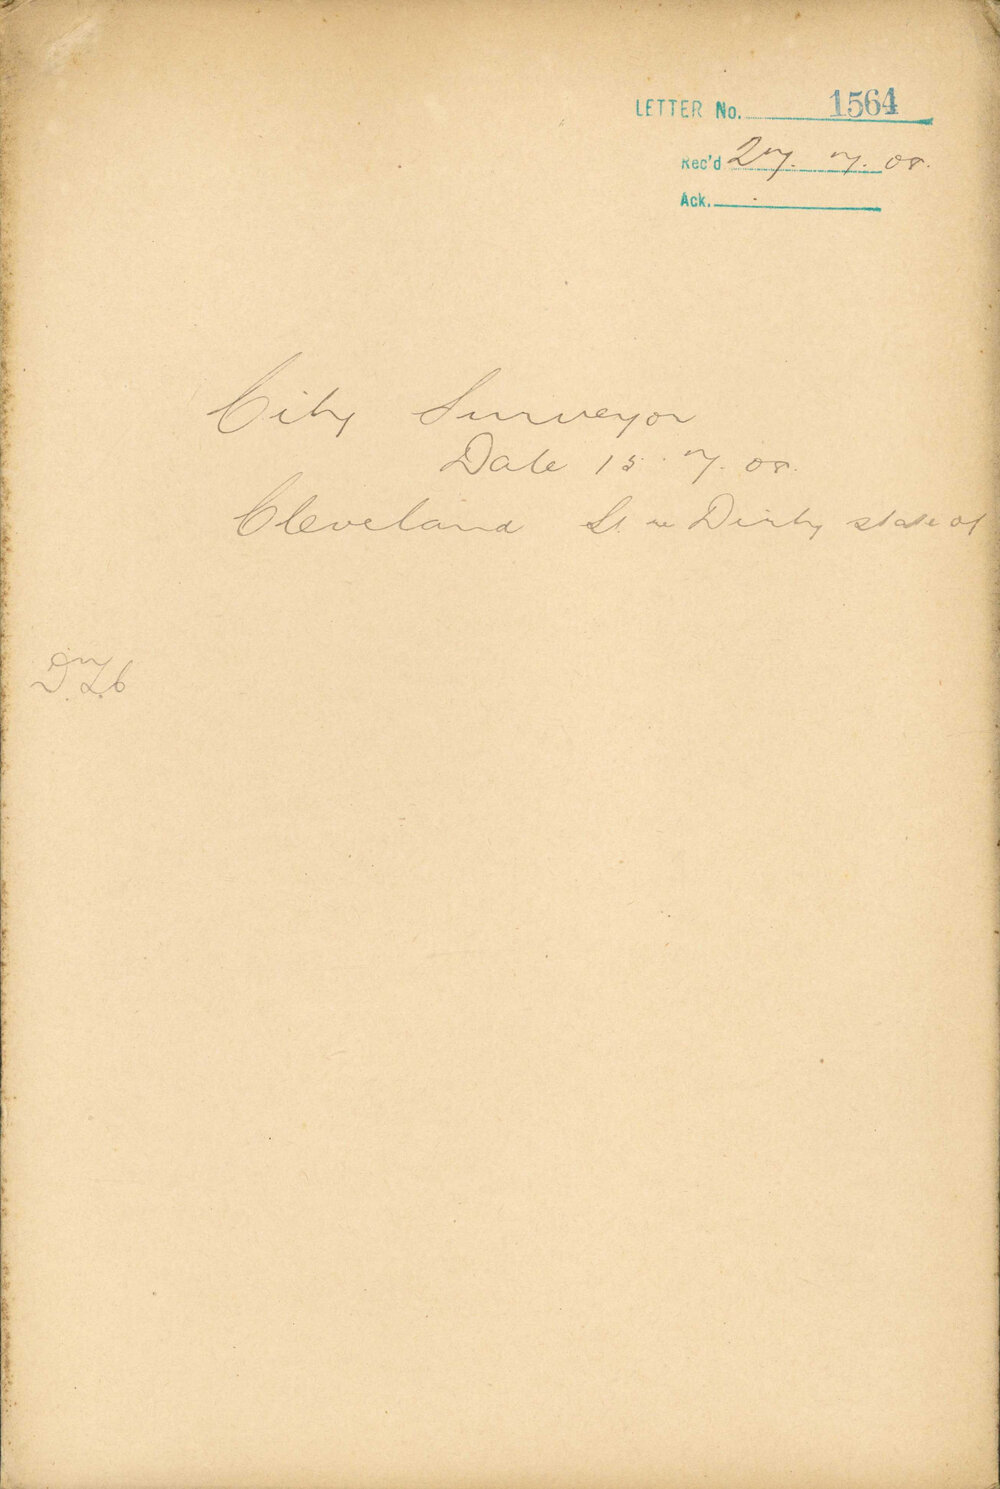 LETTER No. 1564
Rec'd 27. 7. 08.
Ack.
City Surveyor
Date 15. 7. 08.
Cleveland St. re Dirty state of